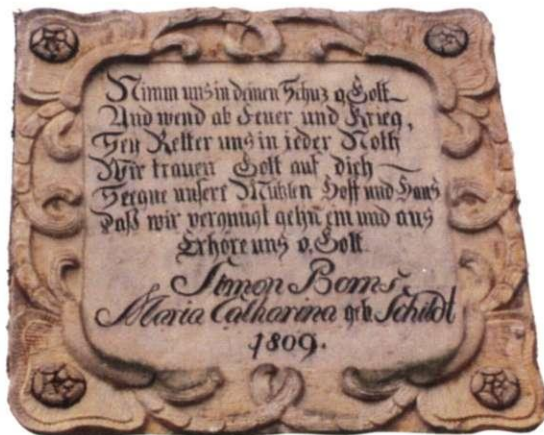 Nimm uns in deinen Schuz o Gott
Und wend ab Feuer und Krieg,
Sey Retter uns in jeder Noth
Wir trauen Gott auf dich
Seegne unsere Mühlen Hoff und Haus
Daß wir vergnügt gehn ein und aus
Erhöre uns o. Gott.
Simon Borns.
Maria Catharina geb Schildt
1809.